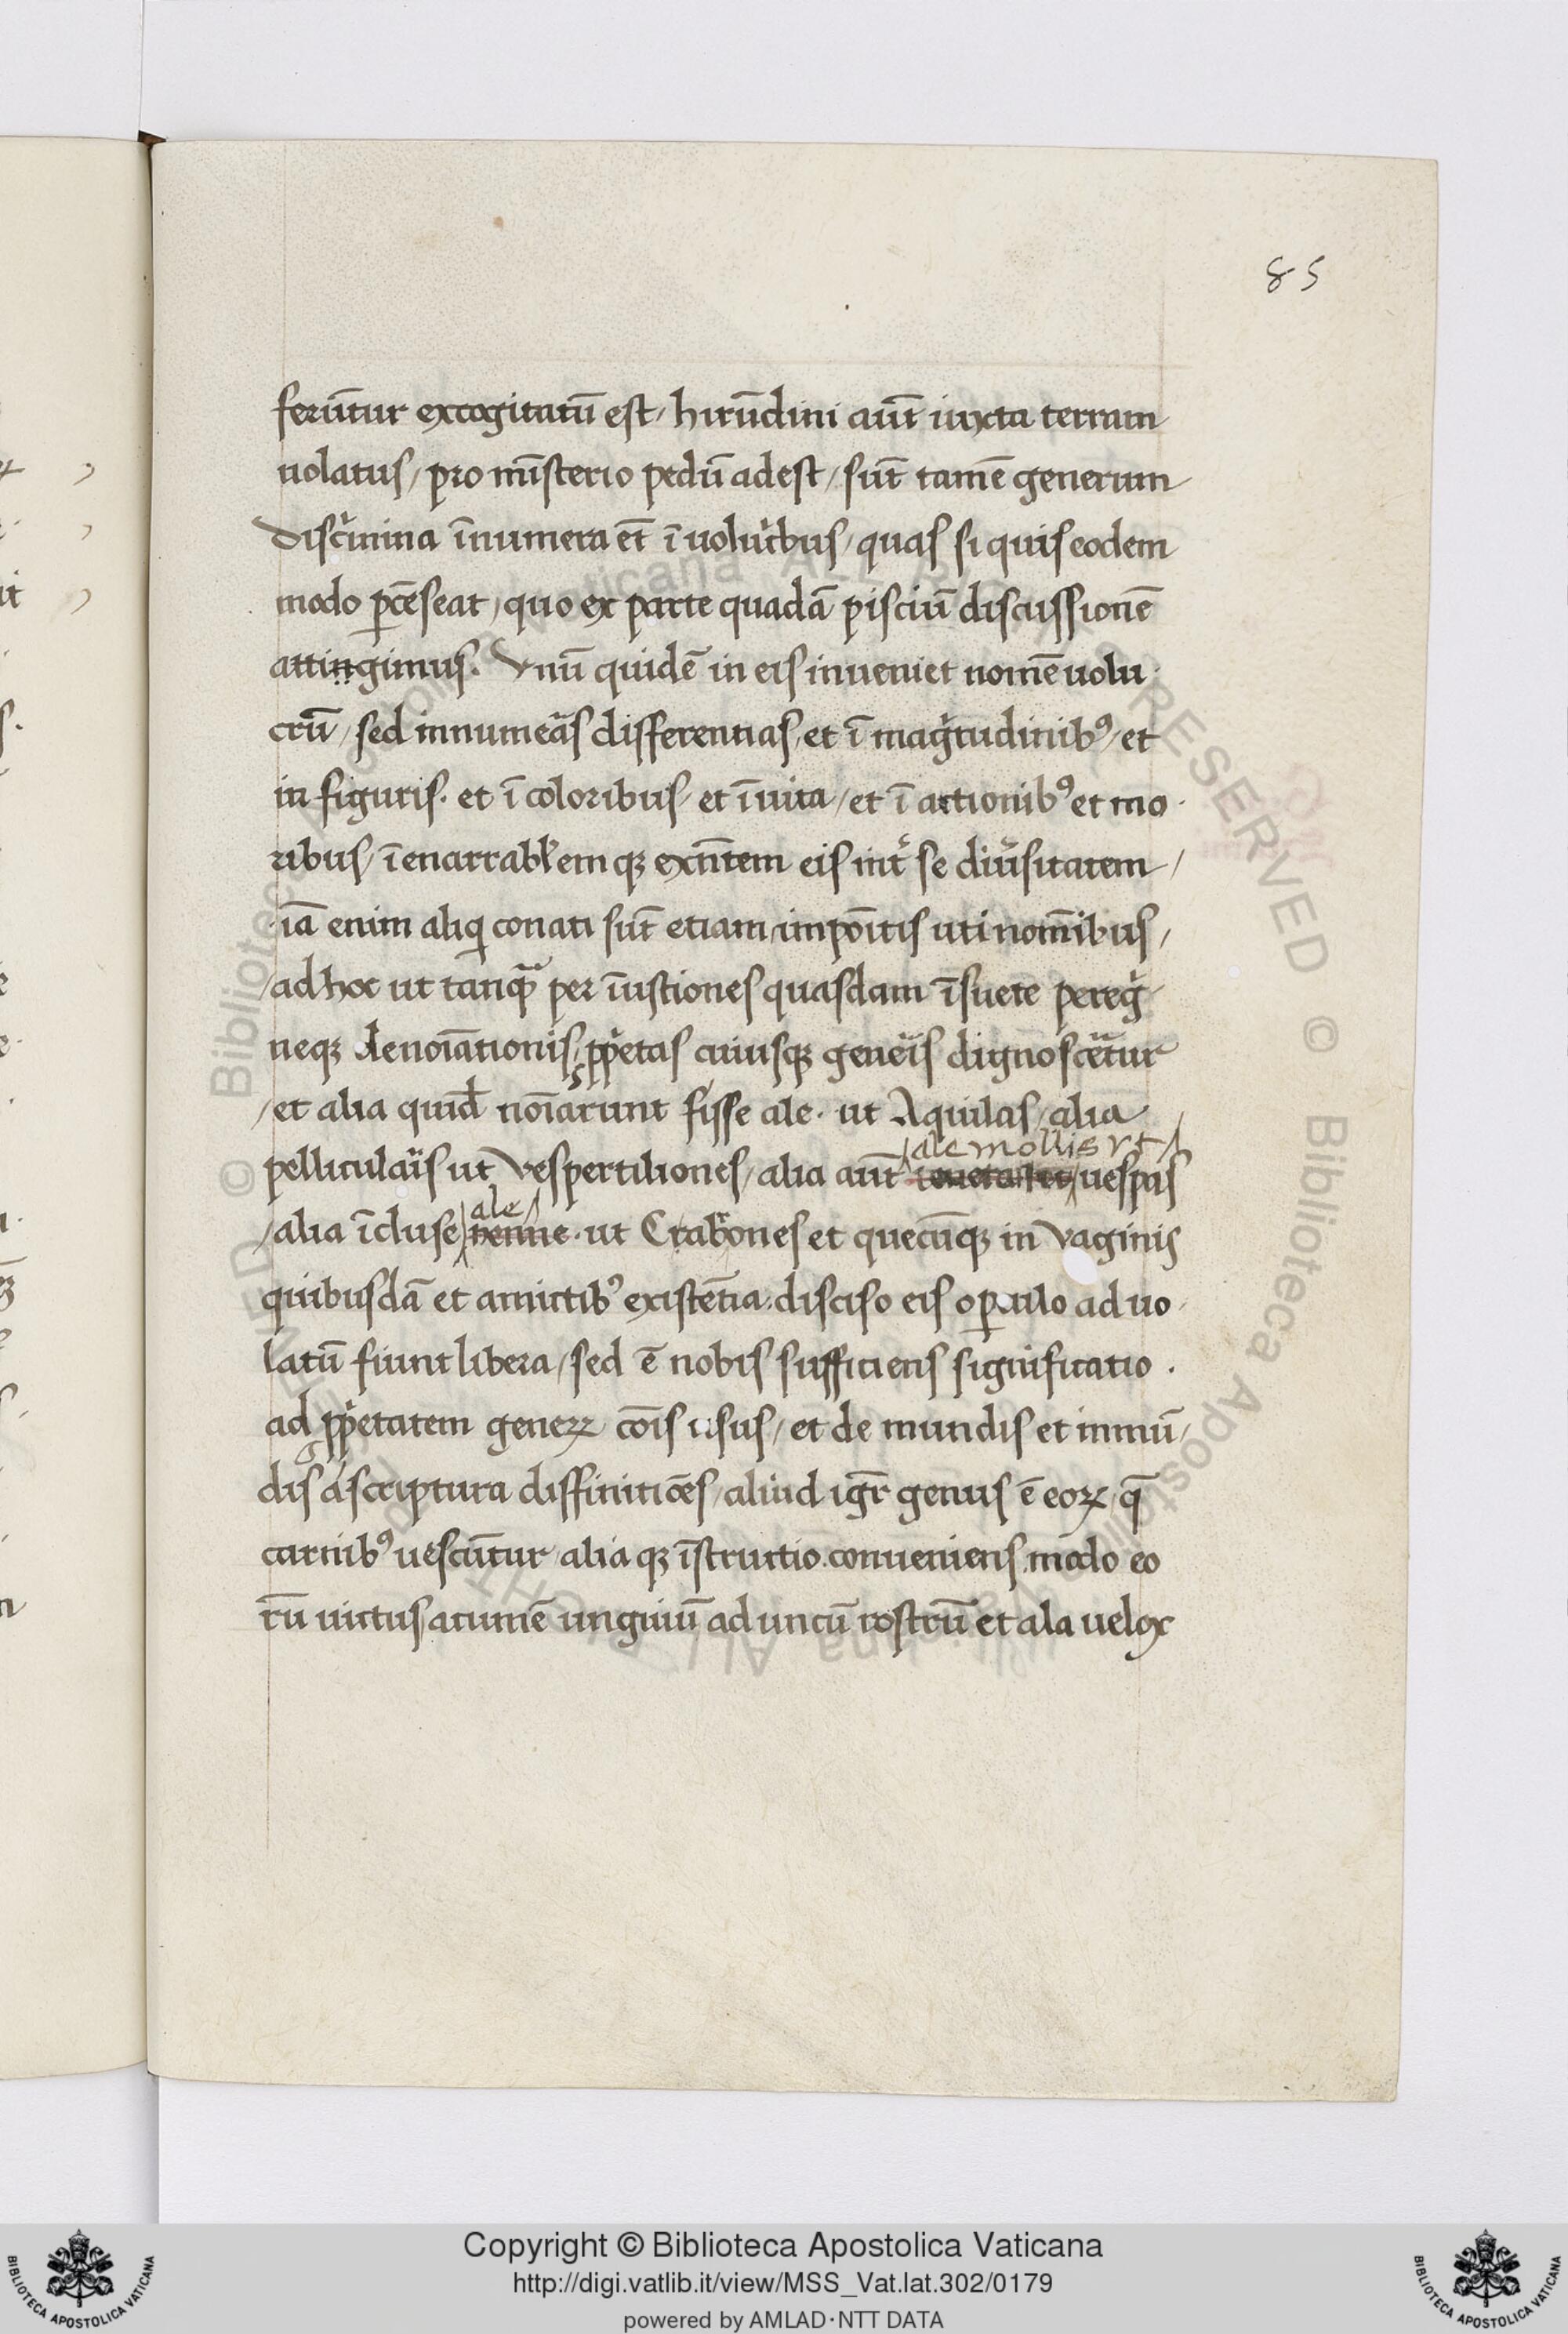 85
ferūtur excogitatū est / hirūdini aūt iuxta terram
uolatus / pro mīsterio pedū adest / sūt tamē generum
discͥmina īnumera et̄ ī uolucͥbus / quas si quis eodem
modo ꝑcēseat / quo ex parte quadā pisciū discussionē
attingimus. Vnū quidē in eis inueniet nomē uolu
crū / sed innumeᷓs differentias / et ī magͥtudinibꝰ / et
in figuris · et ī coloribus / et ī uita / et ī actionibꝰ et mo
ribus / īenarrabl̓em qꝫ exn̄tem eis int̓ se diu̓sitatem /
iā enim aliqͥ conati sūt etiam impoītis uti nomībus /
/ ad hoc ut tanqᷓ per īustiones quasdam īsuete peregͥ
neqꝫ denoīationis / ꝓpͥetas cuiusqꝫ geneᷓis dignosceᷓtur
/ et alia quid̄ noīarunt fisse ale · ut Aquilas / alia
ale mollis vt
pelliculaᷓis ut Vespertiliones / alia aūt uespas
ale
/ alia īcluse penne · ut Crab̓ones et quecūqꝫ in Vaginis
quibusdā et amictibꝰ existētia / disciso eis oꝑculo ad uo
latū fiunt libera / sed ē nobis sufficiens significatio .
ad ꝓpͥetatem geneꝝ cōis usus / et de mundis et inmū
dis a scriptura diffinitiōes / aliud igr̄ genus ē eoꝝ / q̄
carnibꝰ uescūtur / alia qꝫ īstructio conueniens modo eo
rū uictus acumē unguiū aduncū rostrū et ala uelox
© Biblioteca Apostolica Vaticana ALL RIGHTS RESERVED
Copyright © Biblioteca Apostolica Vaticana
http://digi.vatlib.it/view/MSS_Vat.lat.302/0179
powered by AMLAD·NTT DATA
BIBLIOTECA APOSTOLICA VATICANA
BIBLIOTECA APOSTOLICA VATICANA